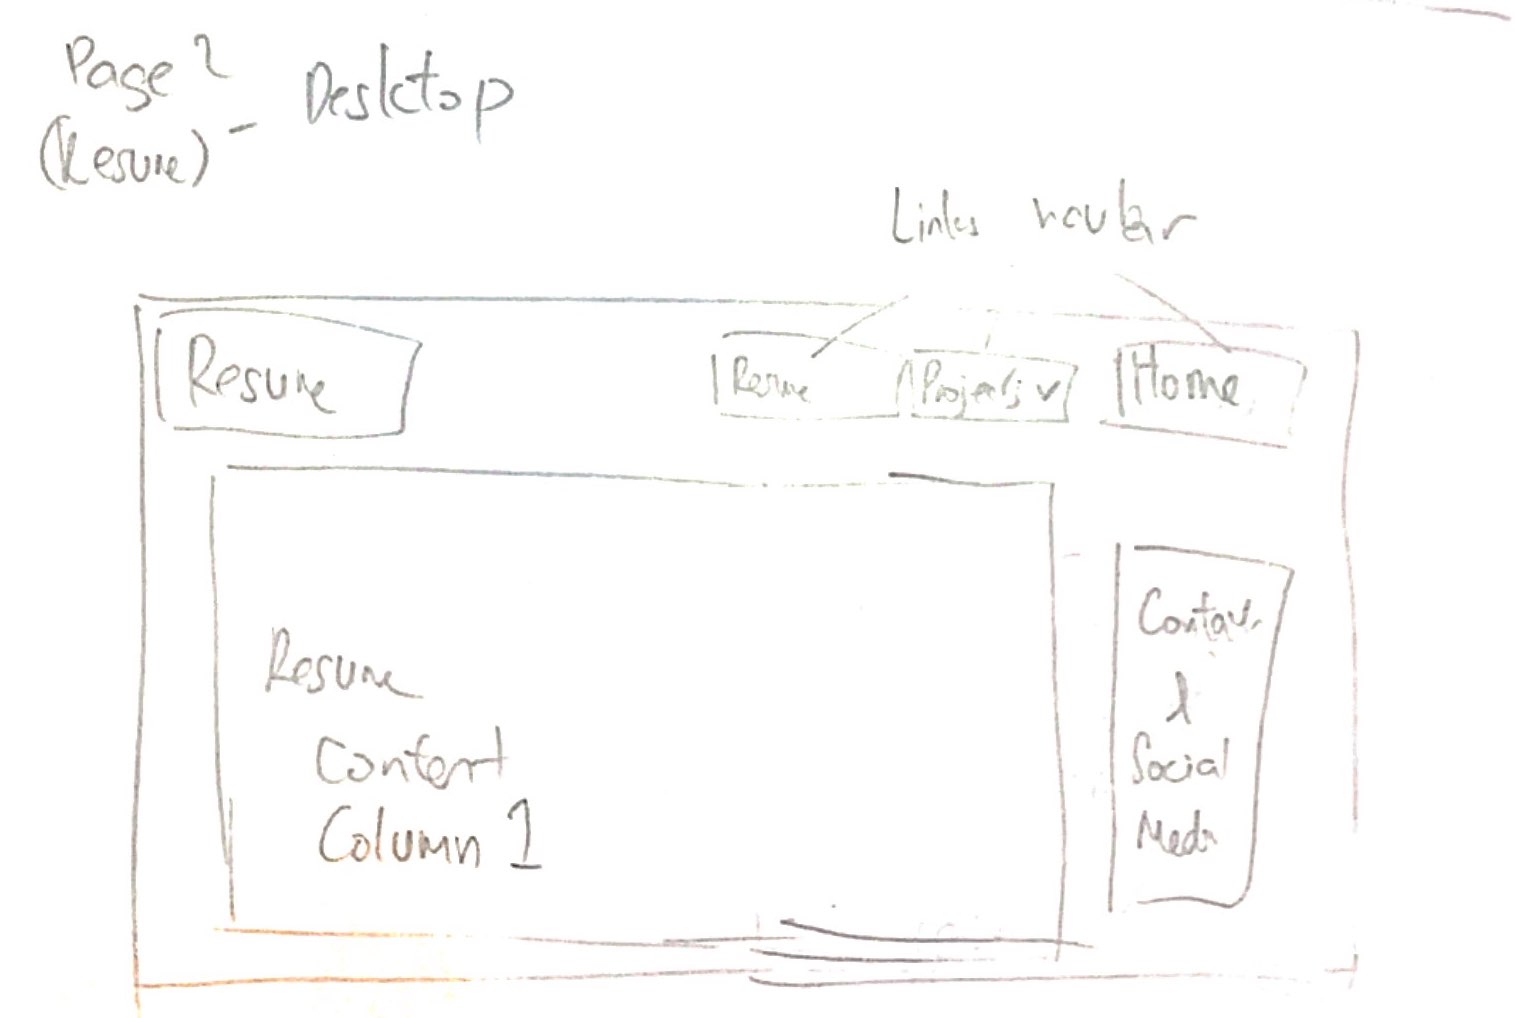 Page 2
(Resume) - Desktop
Links navbar
Resume
Resume
Projects v
Home
Resume
Content
Column 1
Contact
&
Social
Media